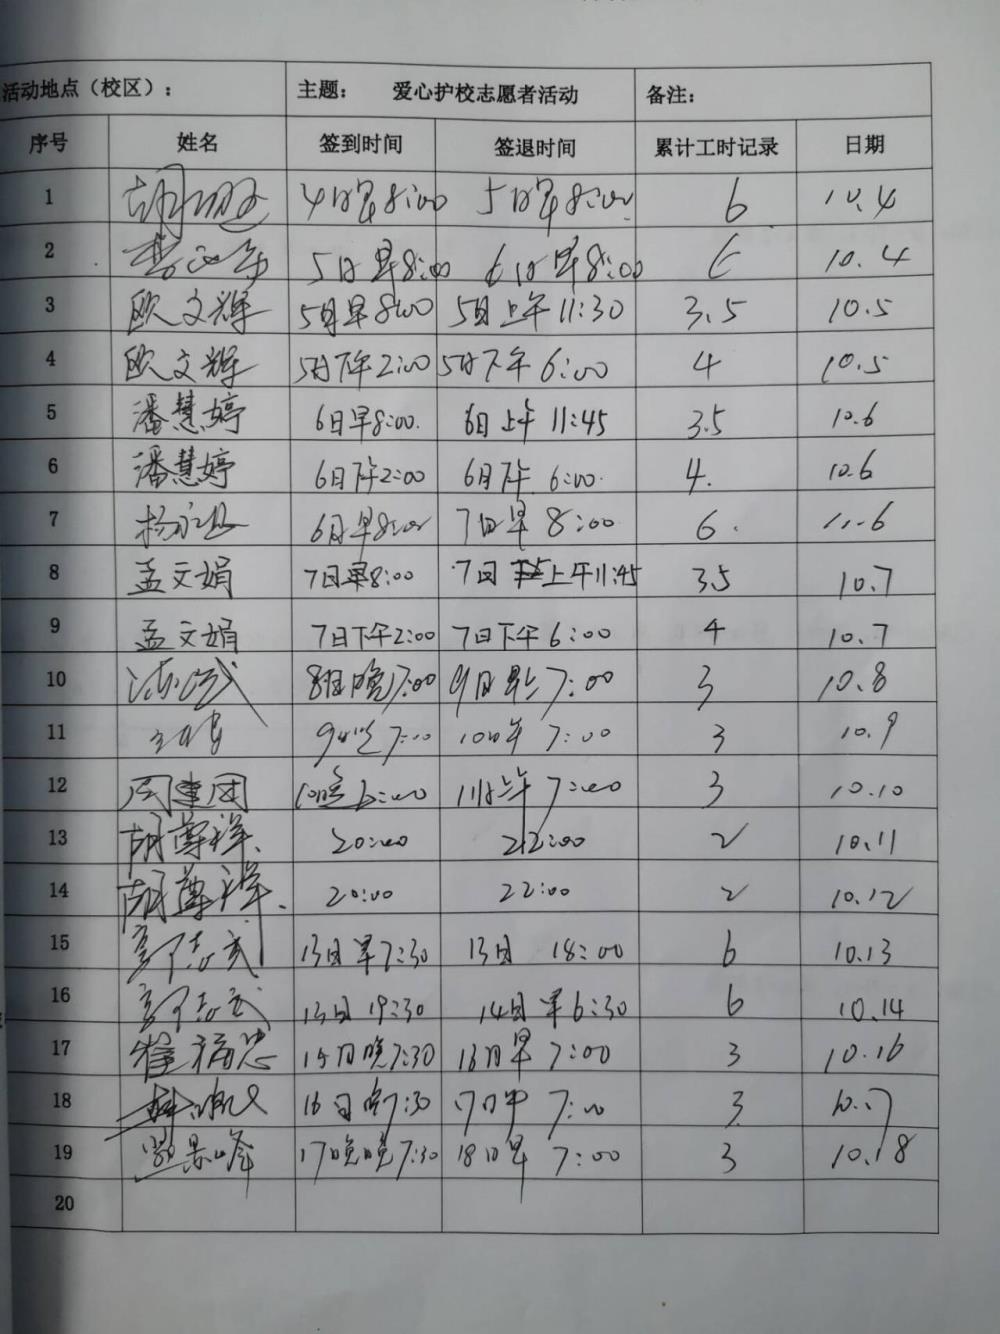 活动地点（校区）： 主题： 爱心护校志愿者活动 备注：
序号 姓名 签到时间 签退时间 累计工时记录 日期
1 4日早8:00 5日早8:00 6 10.4
2 5日早8:00 6日早8:00 6 10.4
3 欧文辉 5日早8:00 5日上午11:30 3.5 10.5
4 欧文辉 5日下午2:00 5日下午6:00 4 10.5
5 潘慧婷 6日早8:00. 6日上午11:45 3.5 10.6
6 潘慧婷 6日下午2:00 6日下午6:00. 4. 10.6
7 6日早8:00 7日早8:00 6.
8 孟文娟 7日早8:00 7日上午11:45 3.5 10.7
9 孟文娟 7日下午2:00 7日下午6:00 4 10.7
10 8日晚7:00 9日早7:00 3 10.8
11 7:00 7:00 3 10.9
12 周建团 10晚6:00 7:00 3 10.10
13 胡尊祥. 20:00 22:00 2 10.11
14 胡尊祥. 20:00 22:00 2 10.12
15 13日早7:30 13日 18:00 6 10.13
16 13日19:30 14日早6:30 6 10.14
17 崔福忠 15日晚7:30 16日早7:00 3 10.16
18 16日晚7:30 17日早7:00 3 10.17
19 17晚晚7:30 18日早7:00 3 10.18
20